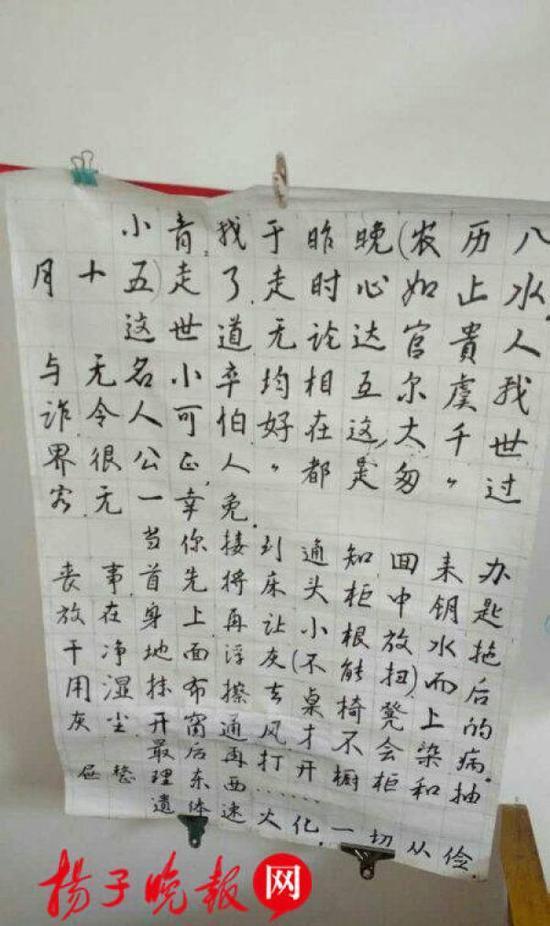 小青,我于昨晚(农历八
月十五)走了.走时心如止水,
这世道无论达官贵人
与无名小卒均相互尔虞我
诈.令人可怕好在这大千世
界很公正,人"都是匆"过
客.无一幸免.
当你接到通知回来办
丧事,首先将床头柜中钥匙
放在身上再让小根放水拖
干净地面浮灰(不能扭)而后
用湿抹布擦去桌椅凳上的
灰尘.开窗通风才不会染病.
最后再打开橱柜和抽
屉整理东西……
遗体速火化,一切从俭
扬子晚报网